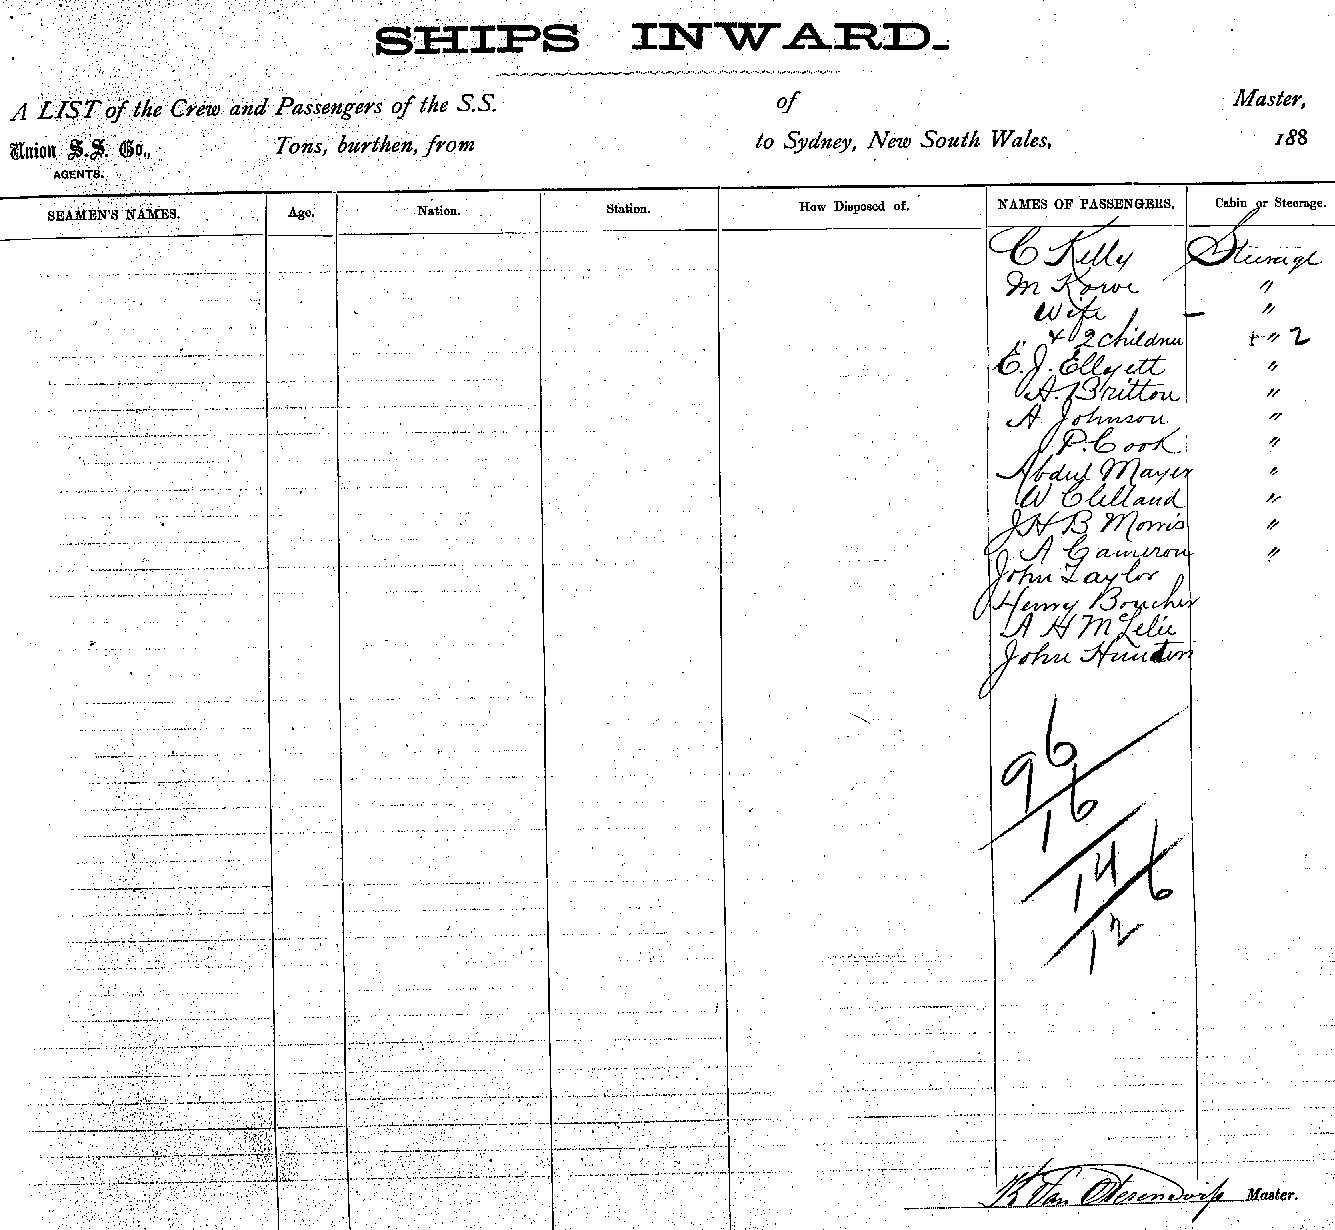 SHIPS INWARD.
A LIST of the Crew and Passengers of the S.S. of Master,
Union S.S. Co., Tons, burthen, from to Sydney, New South Wales, 188
AGENTS.
SEAMEN'S NAMES. Age. Nation. Station. How Disposed of. NAMES OF PASSENGERS. Cabin or Steerage.
C Kelly Steerage
M Rowe "
Wife "
& 2 children + " 2
E. J. Ellyett "
A. Britton "
A Johnson "
J P. Cook "
Abdul Mayer "
W Clelland "
J H B Morris "
J A Cameron "
John Taylor
Henry Boucher
A H McLelie
John Hunter
96
16
14 6
12
Van Master.